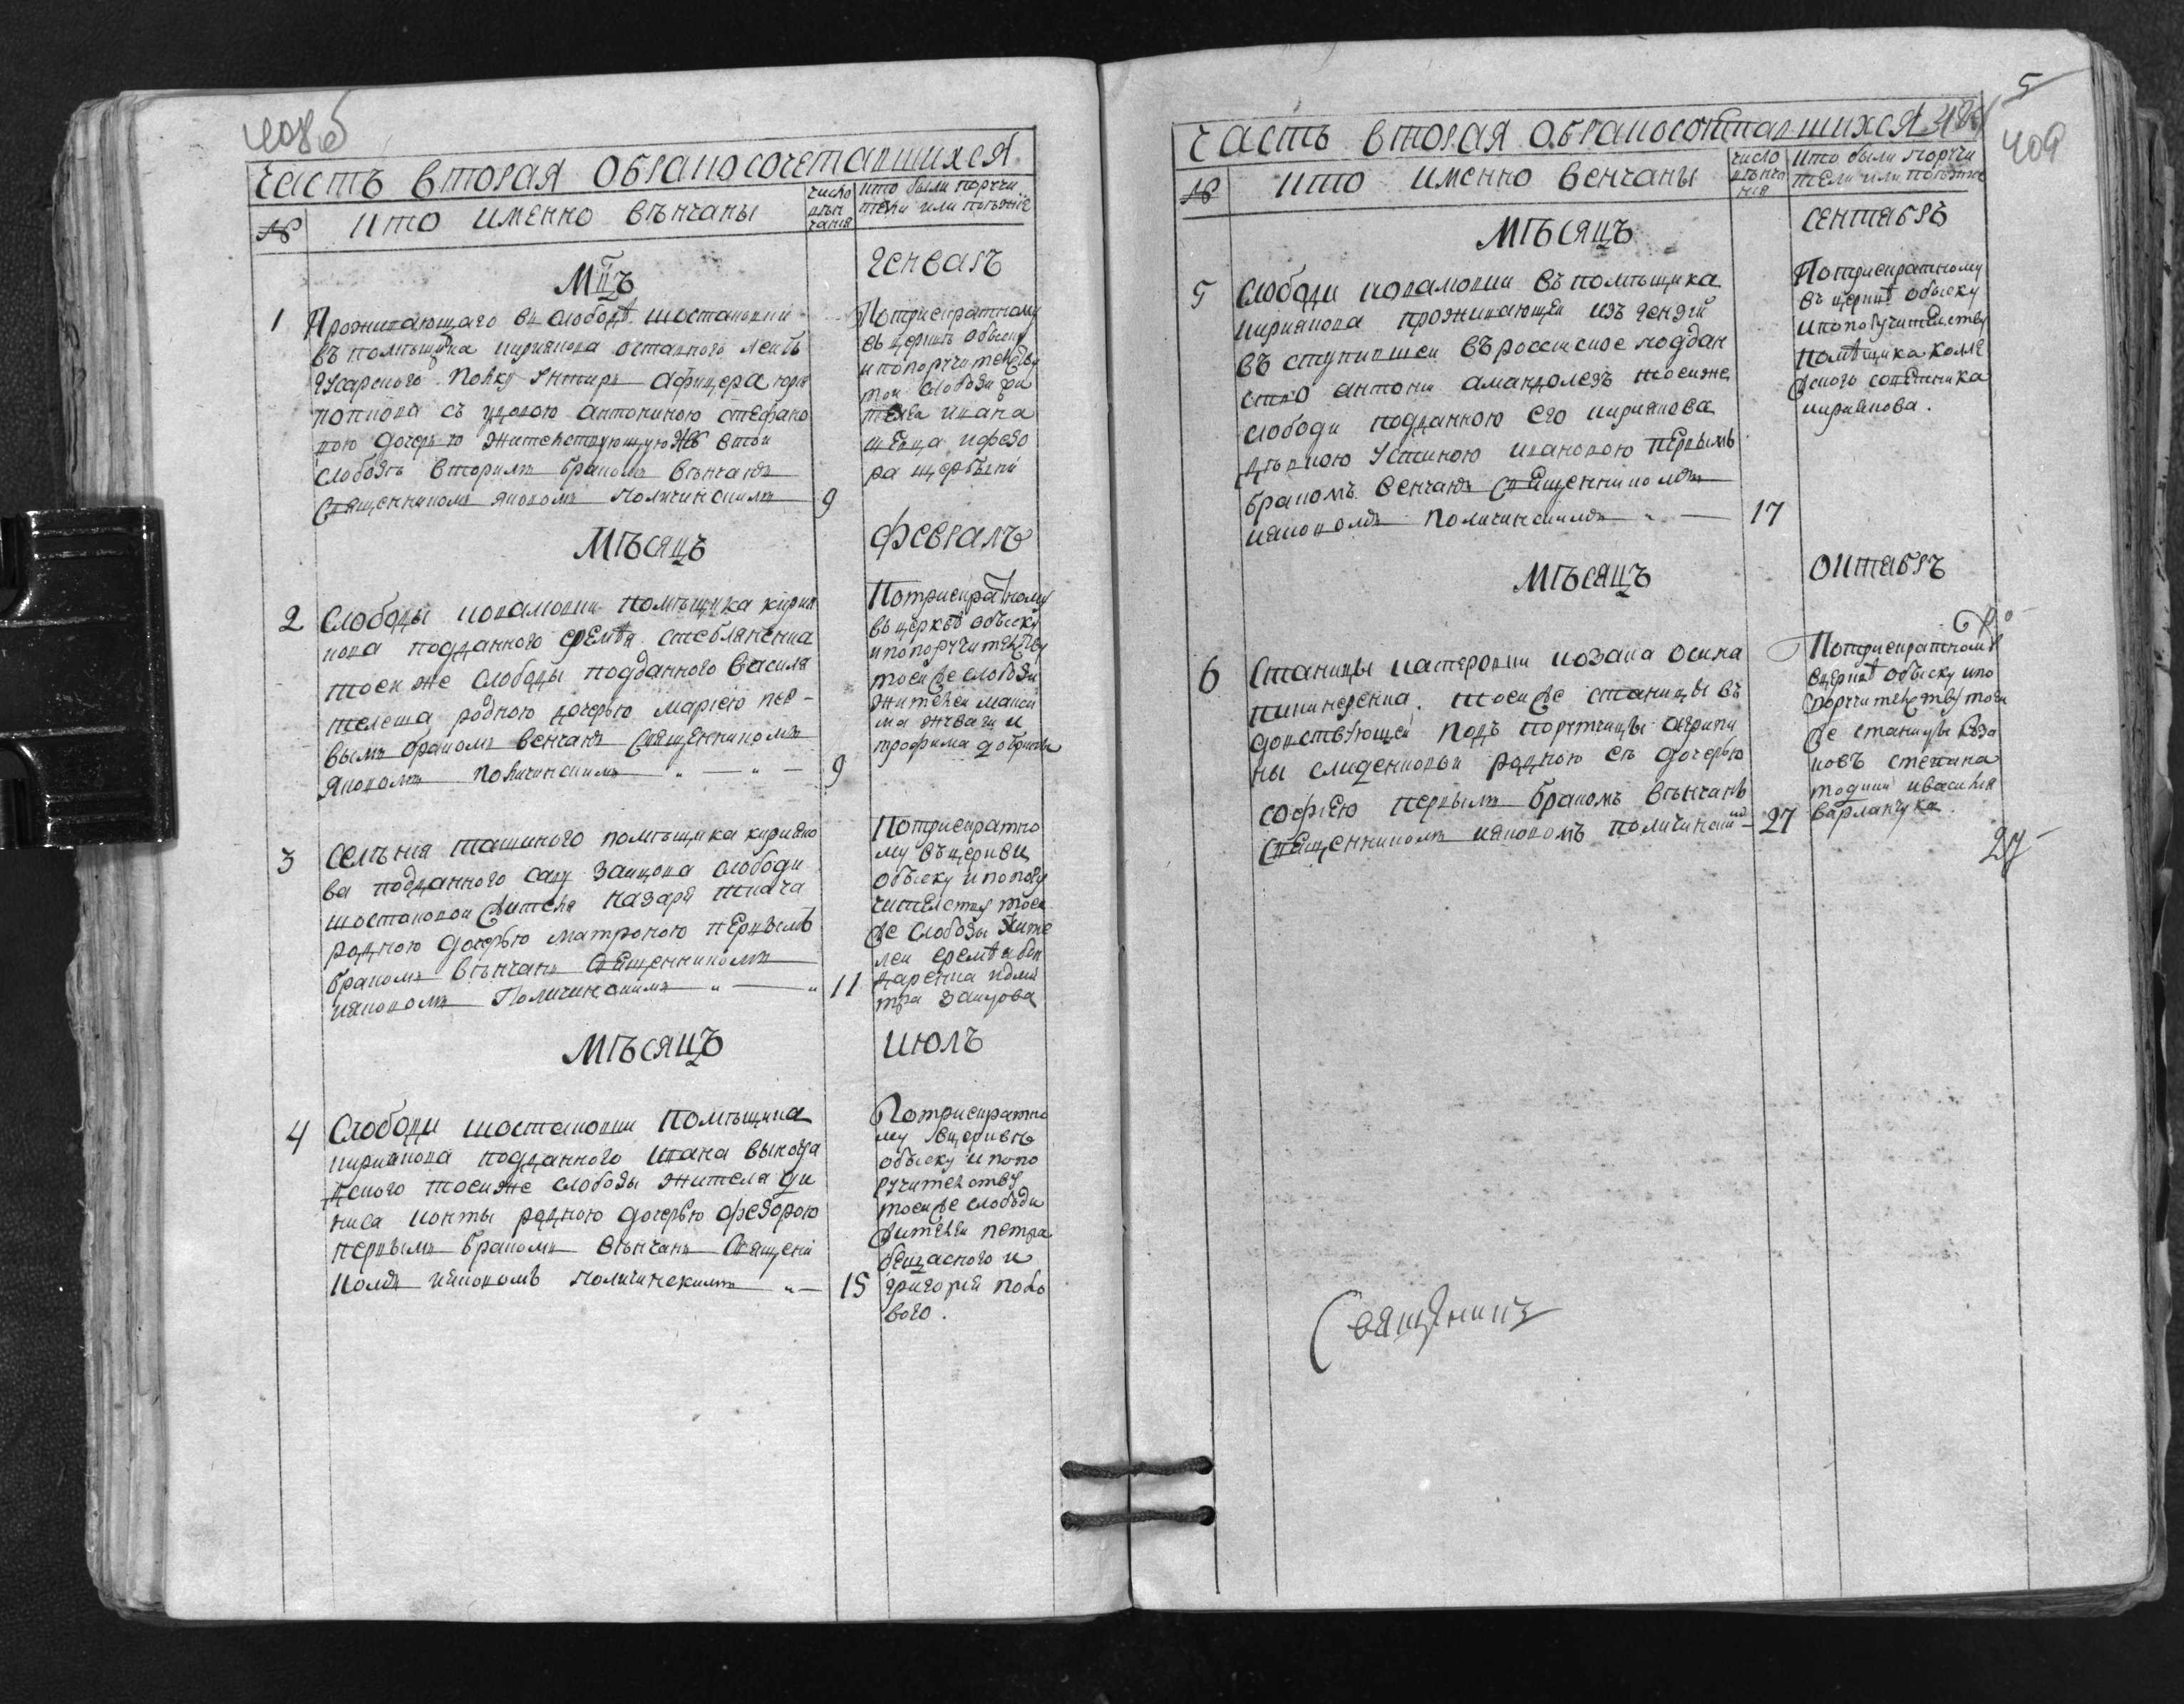 408б
часть вторая обракосочетавшихся
№ кто именно вѣнчаны
число вѣнчания
кто были поручители или поезжане
Мцъ
генварь
1 Проживающаго въ слободѣ шостаковкий
въ помѣщика кириякова оставного Лейбъ
гусарского полку унтиръ афицера
попкова съ вдовою антониною стефано
вою дочерью жителствующую въ той
слободѣ вторимъ бракомъ вѣнчанъ
священникомъ яковомъ поличинскимъ 9
Потриекратному
въ церквѣ обыску
ипопоручителству
той слободи
ивана
ифедо
ра щербини
Мѣсяцъ
февраль
2 Слободы ковалювки помѣщика кирия
кова подданного еремѣя стебляненка
тоей же слободы подданного василя
телеша родною дочерью марією пер-
вымъ бракомъ венчанъ священникомъ
яковомъ поличинскимъ 9
Потриекратному
въ церквѣ обыску
ипопоручителству
тоейже слободи
жителей макси
ма и
трофима
3 Селѣния ташиного помѣщика кирияко
ва подданного саву заицова слободи
шостаковки жителя назаря ткача
родною дочерью матроною первымъ
бракомъ вѣнчанъ священникомъ
ияковомъ Поличинскимъ 11
Потриекратно
му въцеркви
обыску ипопору
чителству тоей
же слободы жите
леи еремѣя бон
даренка идми
тра заицова
Мѣсяцъ
июль
4 Слободи шостаковки помѣщика
кириякова подданного ивана
тоейже слободы жителя де
ниса конты родною дочерью федорою
первымъ бракомъ вѣнчанъ священни
комъ ияковомъ поличинскимъ 15
Потриекратно
му вцерквѣ
обыску ипопо
ручителству
тоейже слободи
жителей петра
безщасного и
григория полю
вого.
5
часть вторая обракосочетавшихся
409
№ кто именно венчаны
число вѣнчания
кто были поручители или поезжане
Мѣсяцъ
сентябрь
5 Слободи ковалювки въ помѣщика
кириякова проживающей изъ
въ ступившей въ россиское поддан
ство антони амандолезъ тоейже
слободи подданною его кириякова
дѣвкою устиною ивановою первымъ
бракомъ венчанъ священникомъ
ияковомъ поличинскимъ 17
Потриекратному
въ церквѣ обыску
ипопоручителству
помѣщика колле
жского совѣтника
кириякова.
Мѣсяцъ
октябрь
6 Станицы касперовки козака осипа
тоейже станицы въ
довствующей подъ портчици
ны родною ея дочерью
софиею первымъ бракомъ вѣнчанъ
священникомъ ияковомъ поличинским 27
Потриекратному
вцерквѣ обыску ипо
поручителству тоей
же станицы коза
ковъ степана
ивасиля
варланчука.
27
Священникъ